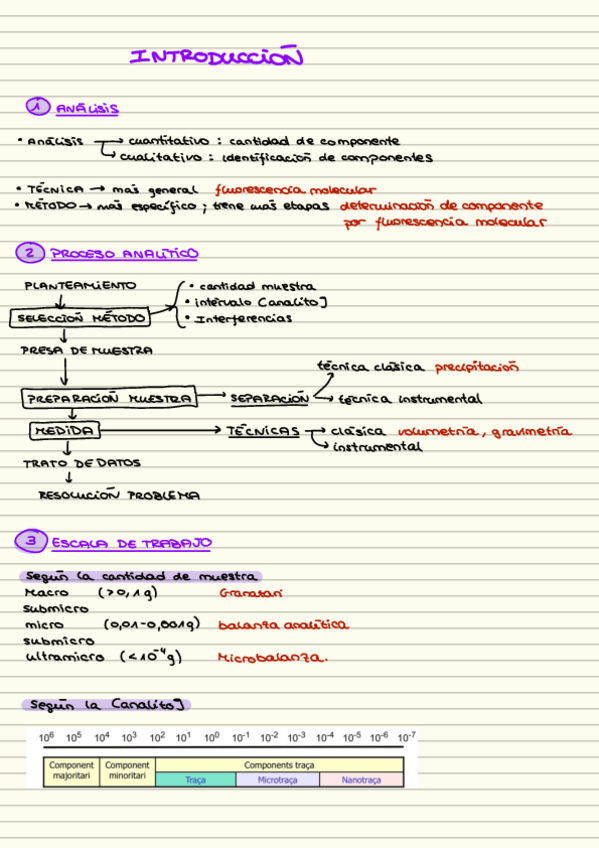 INTRODUCCIÓN
1 ANÁLISIS
• ANÁLISIS → cuantitativo : cantidad de componente
→ cualitativo : identificación de componentes
• TÉCNICA → más general fluorescencia molecular
• MÉTODO → más específico ; tiene más etapas determinación de componente
por fluorescencia molecular
2 PROCESO ANALÍTICO
PLANTEAMIENTO
• cantidad muestra
• intervalo [analito]
SELECCIÓN MÉTODO
• Interferencias
PRESA DE MUESTRA
técnica clásica precipitación
PREPARACIÓN MUESTRA → SEPARACIÓN
técnica instrumental
MEDIDA → TÉCNICAS → clásica volumetría, gravimetría
→ instrumental
TRATO DE DATOS
RESOLUCIÓN PROBLEMA
3 ESCALA DE TRABAJO
Según la cantidad de muestra
Macro (>0,1g) Granatari
submicro
micro (0,01-0,001g) balanza analítica
submicro
ultramicro (<10⁻⁴g) Microbalanza.
Según la [analito]
10⁶ 10⁵ 10⁴ 10³ 10² 10¹ 10⁰ 10⁻¹ 10⁻² 10⁻³ 10⁻⁴ 10⁻⁵ 10⁻⁶ 10⁻⁷
Component majoritari
Component minoritari
Components traça
Traça Microtraça Nanotraça